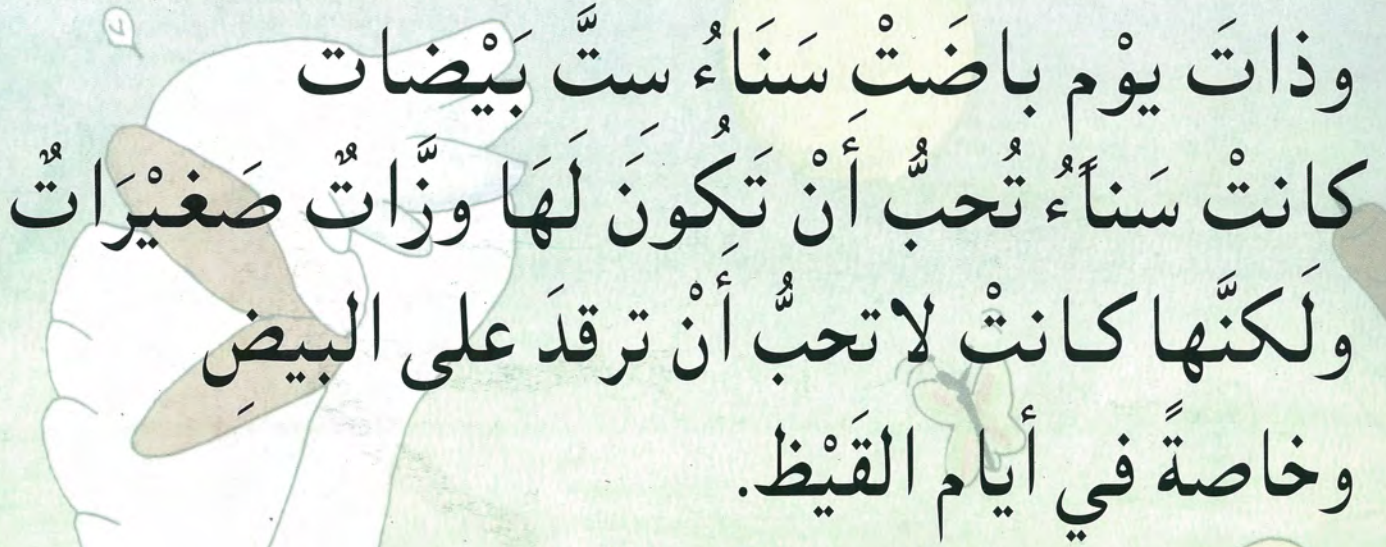 وذاتَ يوْم باضَتْ سَنَاءُ ستَّ بَيْضات
كانتْ سَناَءُ تُحبُّ أَنْ تَكونَ لَهَا وزَّاتٌ صَغيْرَاتٌ
ولَكنَّها كانتْ لاتحبُّ أَنْ ترقدَ على البيضِ
وخاصةً في أيام القَيْظ.